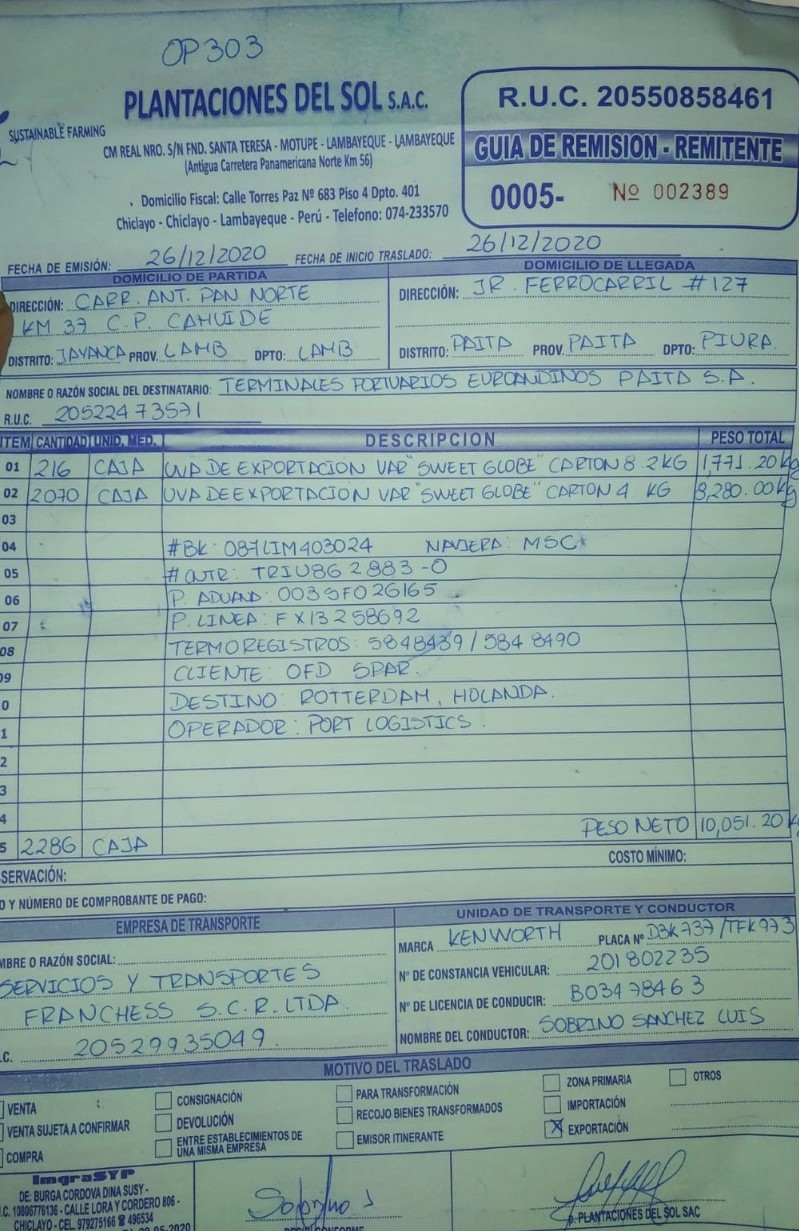 OP303
SUSTAINABLE FARMING
PLANTACIONES DEL SOL S.A.C.
CM REAL NRO. S/N FND. SANTA TERESA - MOTUPE - LAMBAYEQUE - LAMBAYEQUE
(Antigua Carretera Panamericana Norte Km 56)
Domicilio Fiscal: Calle Torres Paz Nº 683 Piso 4 Dpto. 401
Chiclayo - Chiclayo - Lambayeque - Perú - Telefono: 074-233570
R.U.C. 20550858461
GUIA DE REMISION - REMITENTE
0005- Nº 002389
FECHA DE EMISIÓN: 26/12/2020 FECHA DE INICIO TRASLADO: 26/12/2020
DOMICILIO DE PARTIDA
DIRECCIÓN: CARR. ANT. PAN NORTE
KM 37 C.P. CAHUIDE
DISTRITO: JAYANCA PROV. LAMB DPTO: LAMB
DOMICILIO DE LLEGADA
DIRECCIÓN: JR. FERROCARRIL #127
DISTRITO: PAITA PROV. PAITA DPTO: PIURA
NOMBRE O RAZÓN SOCIAL DEL DESTINATARIO: TERMINALES PORTUARIOS EUROANDINOS PAITA S.A.
R.U.C. 20522473571
ITEM CANTIDAD UNID. MED. DESCRIPCION PESO TOTAL
01 216 CAJA UVA DE EXPORTACION VAR "SWEET GLOBE" CARTON 8.2 KG 1,771.20 Kg
02 2070 CAJA UVA DE EXPORTACION VAR "SWEET GLOBE" CARTON 4 KG 8,280.00 Kg
03
04 #BK: 087LIM403024 NAVIERA: MSC
05 # CNTR: TRIU862883-0
06 P. ADUANA: 0038F026165
07 P. LINEA: FX13258692
08 TERMOREGISTROS: 5848489 / 5848490
09 CLIENTE: OFD SPAR.
0 DESTINO: ROTTERDAM, HOLANDA.
1 OPERADOR: PORT LOGISTICS.
2
3
4 PESO NETO 10,051.20 Kg
5 2286 CAJA
SERVACIÓN: COSTO MÍNIMO:
O Y NÚMERO DE COMPROBANTE DE PAGO:
EMPRESA DE TRANSPORTE
MBRE O RAZÓN SOCIAL:
SERVICIOS Y TRANSPORTES
FRANCHESS S.C.R.LTDA.
.C. 20529935049
UNIDAD DE TRANSPORTE Y CONDUCTOR
MARCA KENWORTH PLACA Nº D3K737/TFK973
Nº DE CONSTANCIA VEHICULAR: 201802235
Nº DE LICENCIA DE CONDUCIR: B03478463
NOMBRE DEL CONDUCTOR: SOBRINO SANCHEZ LUIS
MOTIVO DEL TRASLADO
VENTA
VENTA SUJETA A CONFIRMAR
COMPRA
CONSIGNACIÓN
DEVOLUCIÓN
ENTRE ESTABLECIMIENTOS DE
UNA MISMA EMPRESA
PARA TRANSFORMACIÓN
RECOJO BIENES TRANSFORMADOS
EMISOR ITINERANTE
ZONA PRIMARIA
IMPORTACIÓN
X EXPORTACIÓN
OTROS
ImgraSYP
DE: BURGA CORDOVA DINA SUSY -
.C. 10806776136 - CALLE LORA Y CORDERO 806 -
CHICLAYO - CEL. 979275166 496534
Sobrino S
P. PLANTACIONES DEL SOL SAC